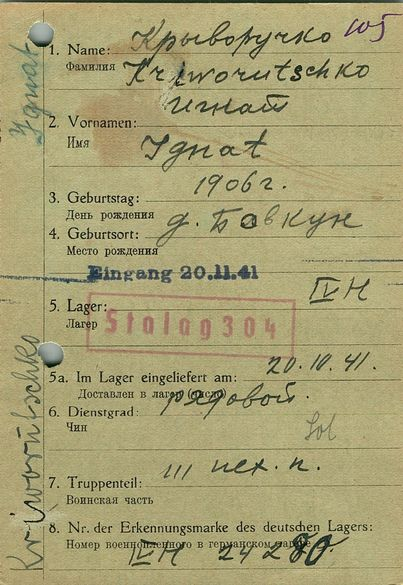 Крыворучко 105
1. Name: Kriworutschko
Фамилия
Игнат
2. Vornamen:
Имя Ignat
1906 г.
3. Geburtstag:
День рождения д. Бовкун
4. Geburtsort:
Место рождения
Eingang 20.11.41
IV H
5. Lager:
Лагер Stalag 304
20.10.41.
5a. Im Lager eingeliefert am:
Доставлен в лагер (число) рядовой.
6. Dienstgrad:
Чин Sol
III пех. п.
7. Truppenteil:
Воинская часть
8. Nr. der Erkennungsmarke des deutschen Lagers:
Номер военнопленного в германском лагере
IV H 24280.
Ignat
Kriworutschko